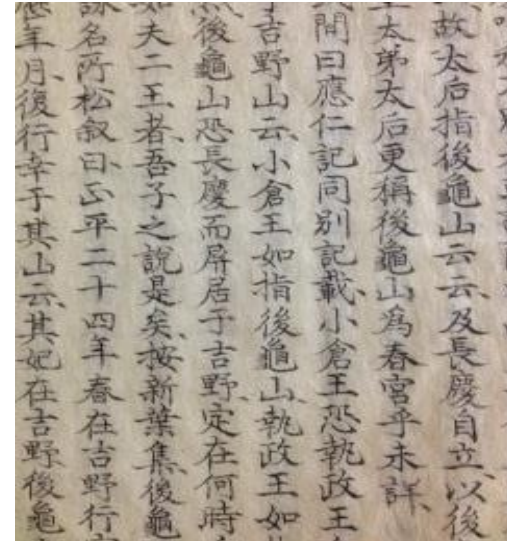 故太后指後龜山云云及長慶自立以後
太弟太后更稱後龜山為春宮乎未詳
間曰應仁記同別記載小倉王恐執政王
吉野山云小倉王如指後龜山執政王如
後龜山恐長慶而屏居于吉野定在何時
如夫二王者吾子之說是矣按新葉集後龜
詠名所松叙曰正平二十四年春在吉野行
年月復行幸于其山云其妃在吉野後龜